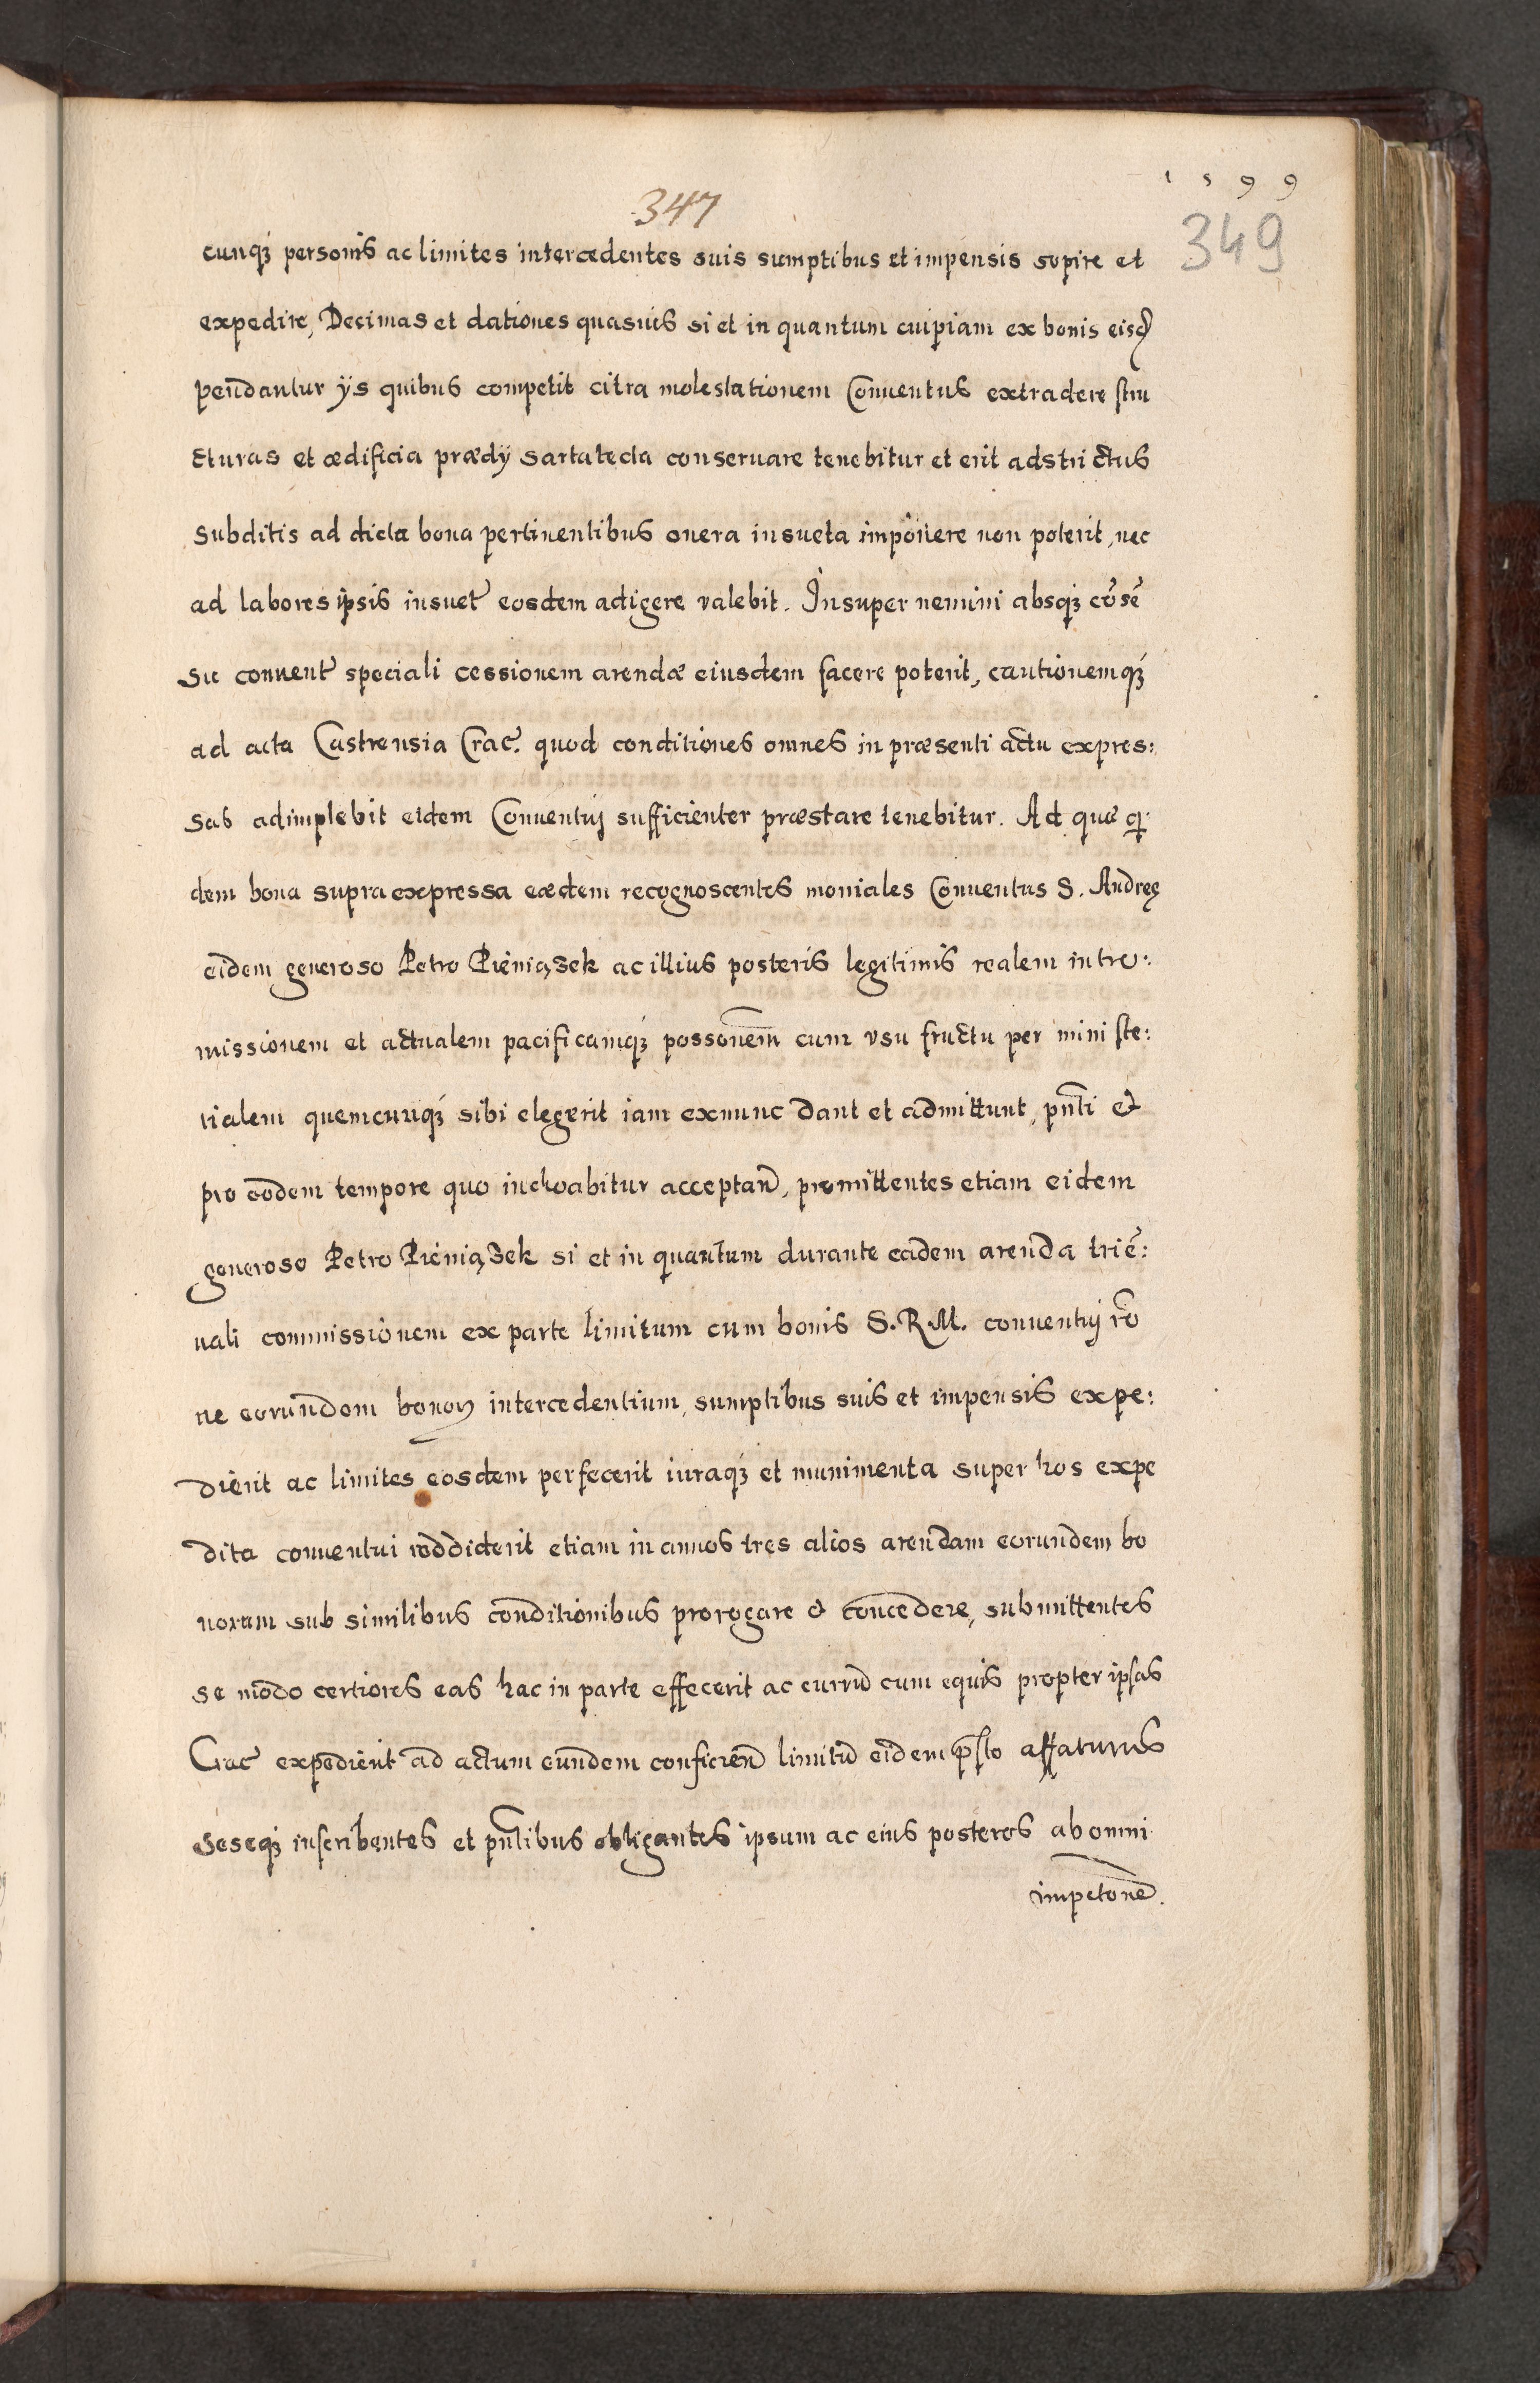 1599
347
349
cunq₃ personis ac limites intercedentes suis sumptibus et impensis sopire et
expedire, Decimas et dationes quasuis si et in quantum cuipiam ex bonis eisd
pendantur ijs quibus competit citra molestationem Conuentus extradere stru
cturas et ædificia prædij sartatecta conseruare tenebitur et erit adstrictus
subditis ad dicta bona pertinentibus onera insueta imponere non poterit, nec
ad labores ipsis insuet eosdem adigere valebit. Insuper nemini absq₃ cōsē
su conuent speciali cessionem arendæ eiusdem facere poterit, cautionemq₃
ad acta Castrensia Crac. quod conditiones omnes in præsenti actu expres:
sas adimplebit eidem Conuentuj sufficienter præstare tenebitur. Ad quæ qi
dem bona supra expressa eædem recognoscentes moniales Conuentus S. Andreę
eidem generoso Petro Pieniązek ac illius posteris legitimis realem intro:
missionem et actualem pacificamq₃ possonem cum vsu fructu per ministe:
rialem quemcunq₃ sibi elegerit iam exnunc dant et admittunt, pnti et
pro eodem tempore quo inchoabitur acceptan̄, promittentes etiam eidem
generoso Petro Pieniązek si et in quantum durante eadem arenda triē:
nali commissionem ex parte limitum cum bonis S. R. M. conuentuj rō
ne eorundem bonoꝝ intercedentium, sumptibus suis et impensis expe:
dierit ac limites eosdem perfecerit iuraq₃ et munimenta super hos expe
dita conuentui reddiderit etiam in annos tres alios arendam eorundem bo
norum sub similibus conditionibus prorogare & concedere, submittentes
se modo certiores eas hac in parte effecerit ac currū cum equis propter ipsas
Crac expedierit ad actum eundem conficien̄ limitū eidem psto affaturus
seseq₃ inscribentes et pntibus obligantes ipsum ac eius posteros ab omni
impetone.